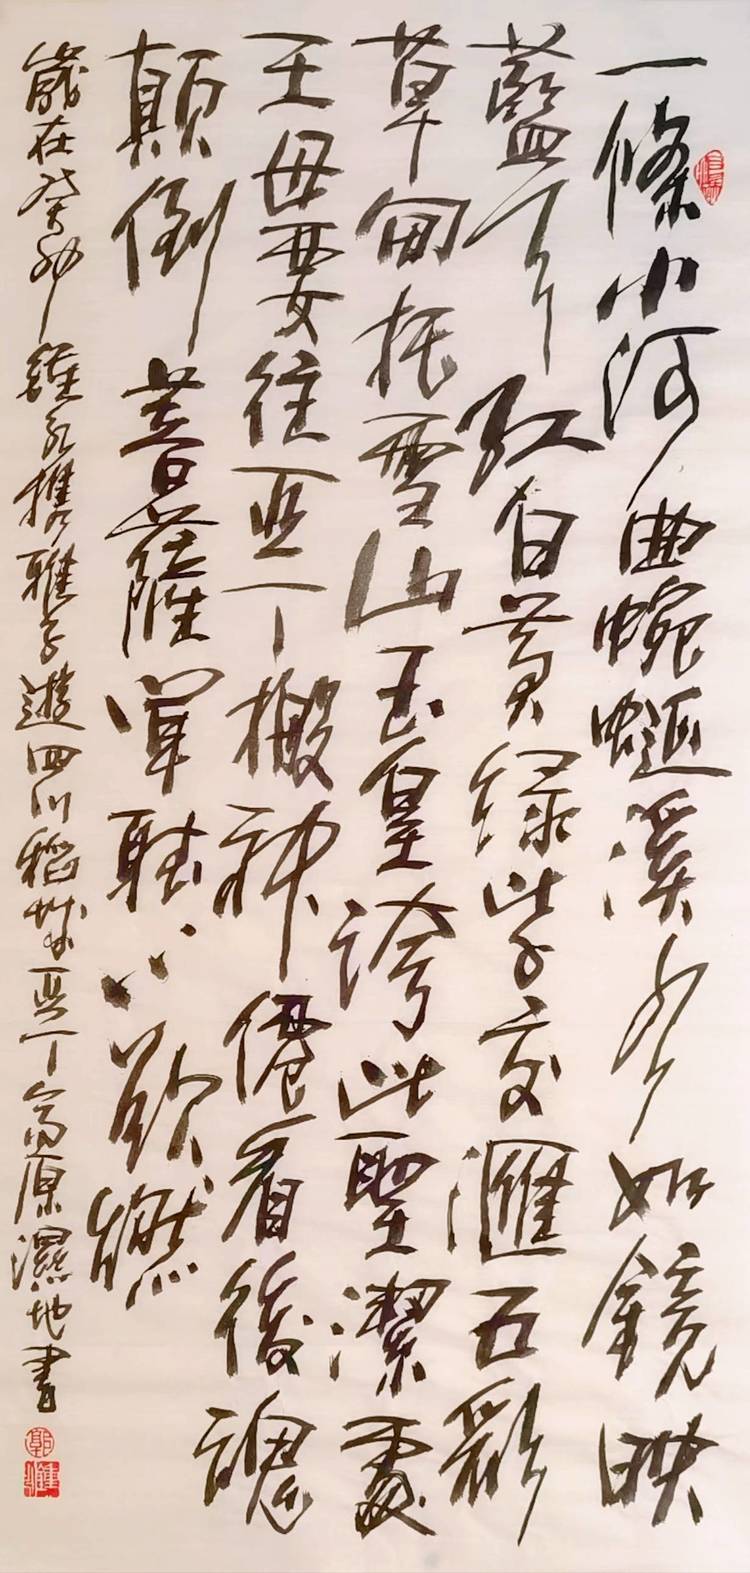 一條小河曲蜿蜒溪水如鏡映
藍天紅白黃綠紫交匯五彩
草甸托雪山玉皇誇此聖潔處
王母要往亞丁搬神僊看後魂
顛倒菩薩聞聽心欲燃
歲在癸卯鍾永攜雅子遊四川稻城亞丁高原濕地書